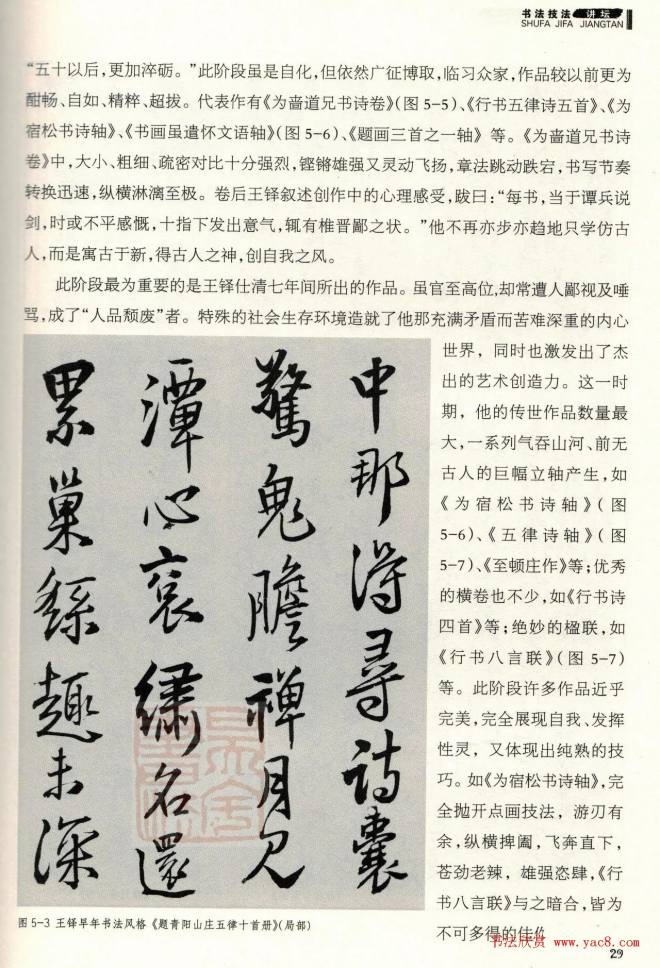 书法技法 讲坛
SHUFA JIFA JIANGTAN
“五十以后，更加淬砺。”此阶段虽是自化，但依然广征博取，临习众家，作品较以前更为
酣畅、自如、精粹、超拔。代表作有《为啬道兄书诗卷》（图 5-5）、《行书五律诗五首》、《为
宿松书诗轴》、《书画虽遣怀文语轴》（图 5-6）、《题画三首之一轴》等。《为啬道兄书诗
卷》中，大小、粗细、疏密对比十分强烈，铿锵雄强又灵动飞扬，章法跳动跌宕，书写节奏
转换迅速，纵横淋漓至极。卷后王铎叙述创作中的心理感受，跋曰：“每书，当于谭兵说
剑，时或不平感慨，十指下发出意气，辄有椎晋鄙之状。”他不再亦步亦趋地只学仿古
人，而是寓古于新，得古人之神，创自我之风。
此阶段最为重要的是王铎仕清七年间所出的作品。虽官至高位，却常遭人鄙视及唾
骂，成了“人品颓废”者。特殊的社会生存环境造就了他那充满矛盾而苦难深重的内心
世界，同时也激发出了杰
出的艺术创造力。这一时
期，他的传世作品数量最
大，一系列气吞山河、前无
古人的巨幅立轴产生，如
《为宿松书诗轴》（图
5-6）、《五律诗轴》（图
5-7）、《至顿庄作》等；优秀
的横卷也不少，如《行书诗
四首》等；绝妙的楹联，如
《行书八言联》（图 5-7）
等。此阶段许多作品近乎
完美，完全展现自我、发挥
性灵，又体现出纯熟的技
巧。如《为宿松书诗轴》，完
全抛开点画技法，游刃有
余，纵横捭阖，飞奔直下，
苍劲老辣，雄强恣肆，《行
书八言联》与之暗合，皆为
不可多得的佳作
中那得寻诗囊
惊鬼胆禅月见
潭心裒绣名还
累巢繇趣未深
图 5-3 王铎早年书法风格《题青阳山庄五律十首册》（局部）
书法欣赏 www.yac8.com
29